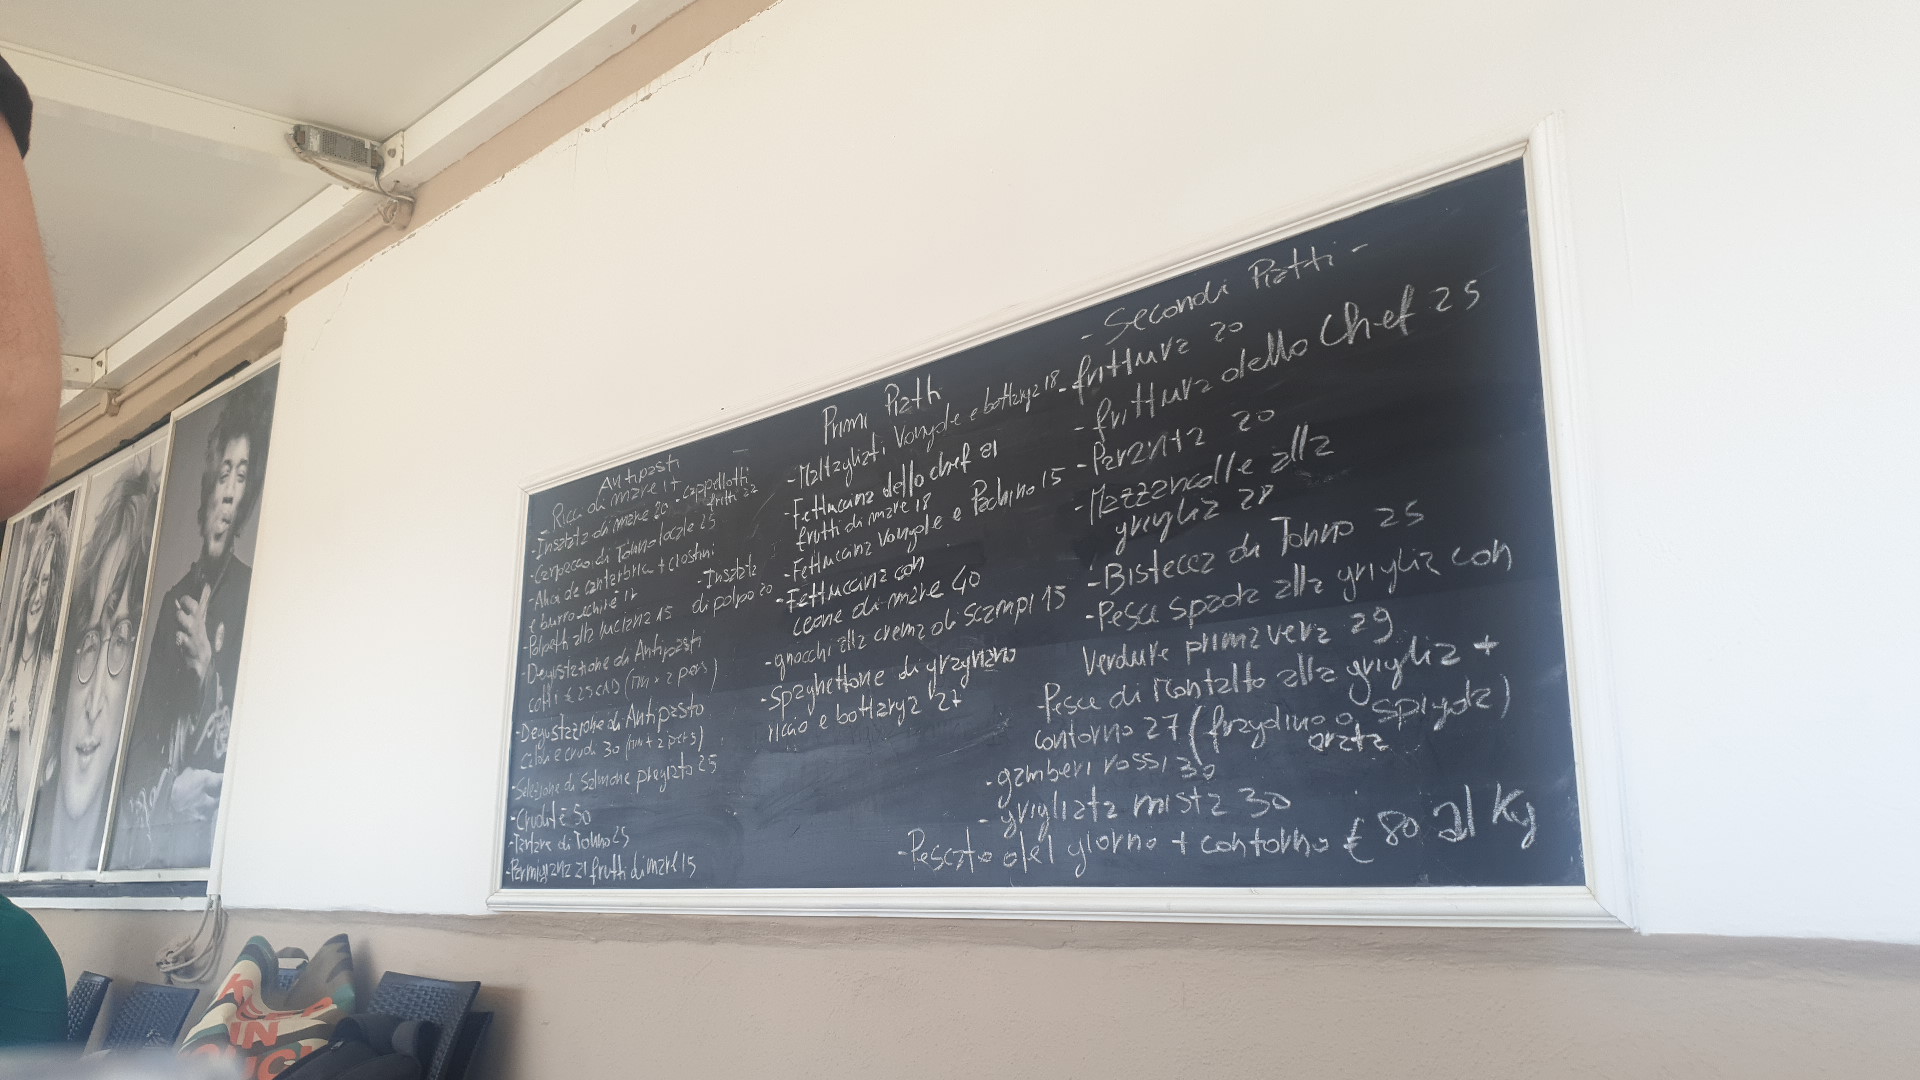 Antipasti
- Ricci di mare 17
- Cappellotti
fritti 22
- Insalata di mare 20
- Carpaccio di Tonno locale 25
- Alici de cantarbrica + crostini
e burro echirè 17
- Insalata
di polpo 20
- Polpetti alla luciana 15
- Degustazione di Antipasti
cotti € 25 CAD (min x 2 pers)
- Degustazione di Antipasto
caldi e crudi 30 (min x 2 pers)
- Selezione di Salmone pregiato 25
- Crudité 50
- Tartare di Tonno 25
- Parmigiana ai frutti di mare 15
Primi Piatti
- Maltagliati Vongole e bottarga 18
- Fettuccina dello chef ai
frutti di mare 18
- Fettuccina vongole e Pachino 15
- Fettuccina con
leone di mare 40
- gnocchi alla crema di Scampi 15
- Spaghettone di gragnano
riccio e bottarga 27
- Secondi Piatti -
- frittura 20
- frittura dello Chef 25
- Paranza 20
- Mazzancolle alla
griglia 28
- Bistecca di Tonno 25
- Pesce spada alla griglia con
Verdure primavera 29
Pesce di Montalto alla griglia +
contorno 27 (fragolino o spigola)
orata
- gamberi rossi 30
- grigliata mista 30
- Pescato del giorno + contorno € 80 al Kg
IN